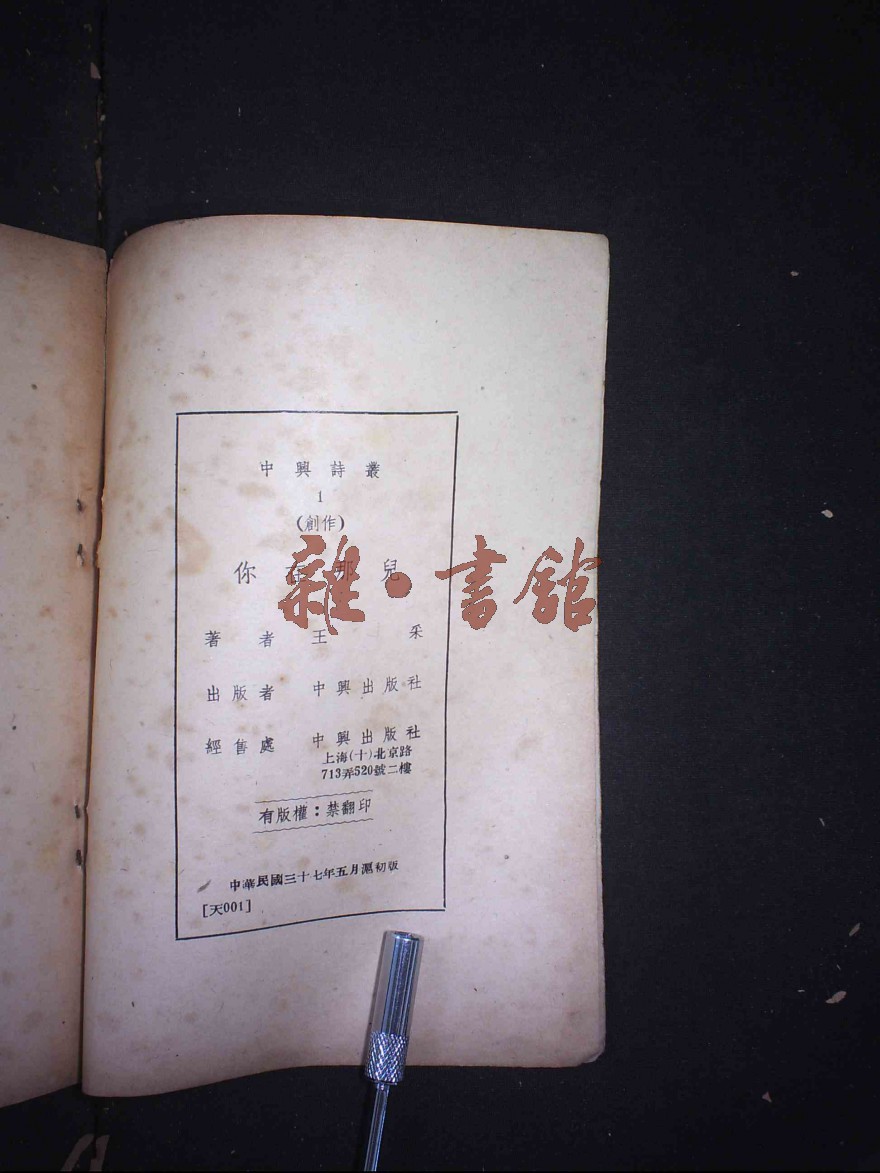 中興詩叢
1
(創作)
你在那兒
雜·書館
著者 王采
出版者 中興出版社
經售處 中興出版社
上海(十)北京路
713弄520號二樓
有版權：禁翻印
中華民國三十七年五月滬初版
[天001]